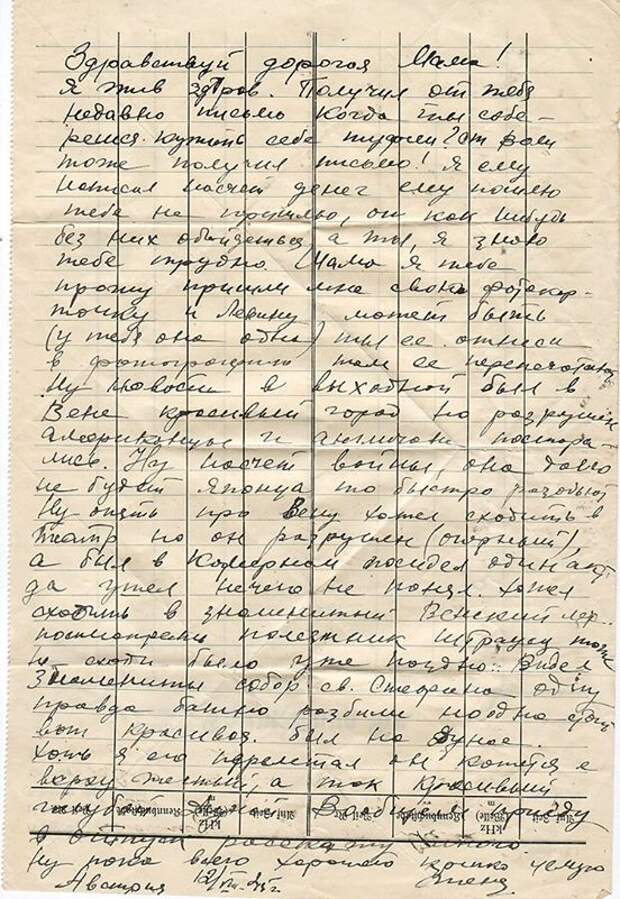 Здравствуй дорогая Мама!
Я жив здоров. Получил от тебя
недавно письмо когда ты собе-
решся купить себе туфли? от Вали
тоже получил письмо! Я ему
написал насчет денег ему пошлю
тебе не пришлю, он как нибудь
без них обойдеться, а ты, я знаю
тебе трудно. Мама я тебе
прошу пришли мне свою фотокар-
точку и Левину может быть
(у тебя она одна) ты ее отнеси
в фотографию там ее перепечатают
Ну Новости в выходной был в
Вене красивый город но разрушен
американцы и англичане постара-
лись. Ну насчет войны, она долго
не будет Японца то быстро разобьют
Ну опять про Вену хотел сходить в
театр но он разрушен (оперный),
а был в Камерном посидел один акт
да ушел нечего не понял. Хотел
сходить в знаменитый Венский лес
посмотреть Штраусу тоже
не сходил было уже поздно. Видел
Знаменитый собор св. Стефана одну
правда башню разбили но одна стоит
вот красивая. был на Дунае.
хоть я его перелетал он кажется с
верху желтый, а так красивый
голубой Дунай Вообщем приеду
в отпуск расскажу много
ну пока всего хорошего крепко целую
Австрия 12/VIII-45г.
KHz (Welle) m
Rennbuchstabe